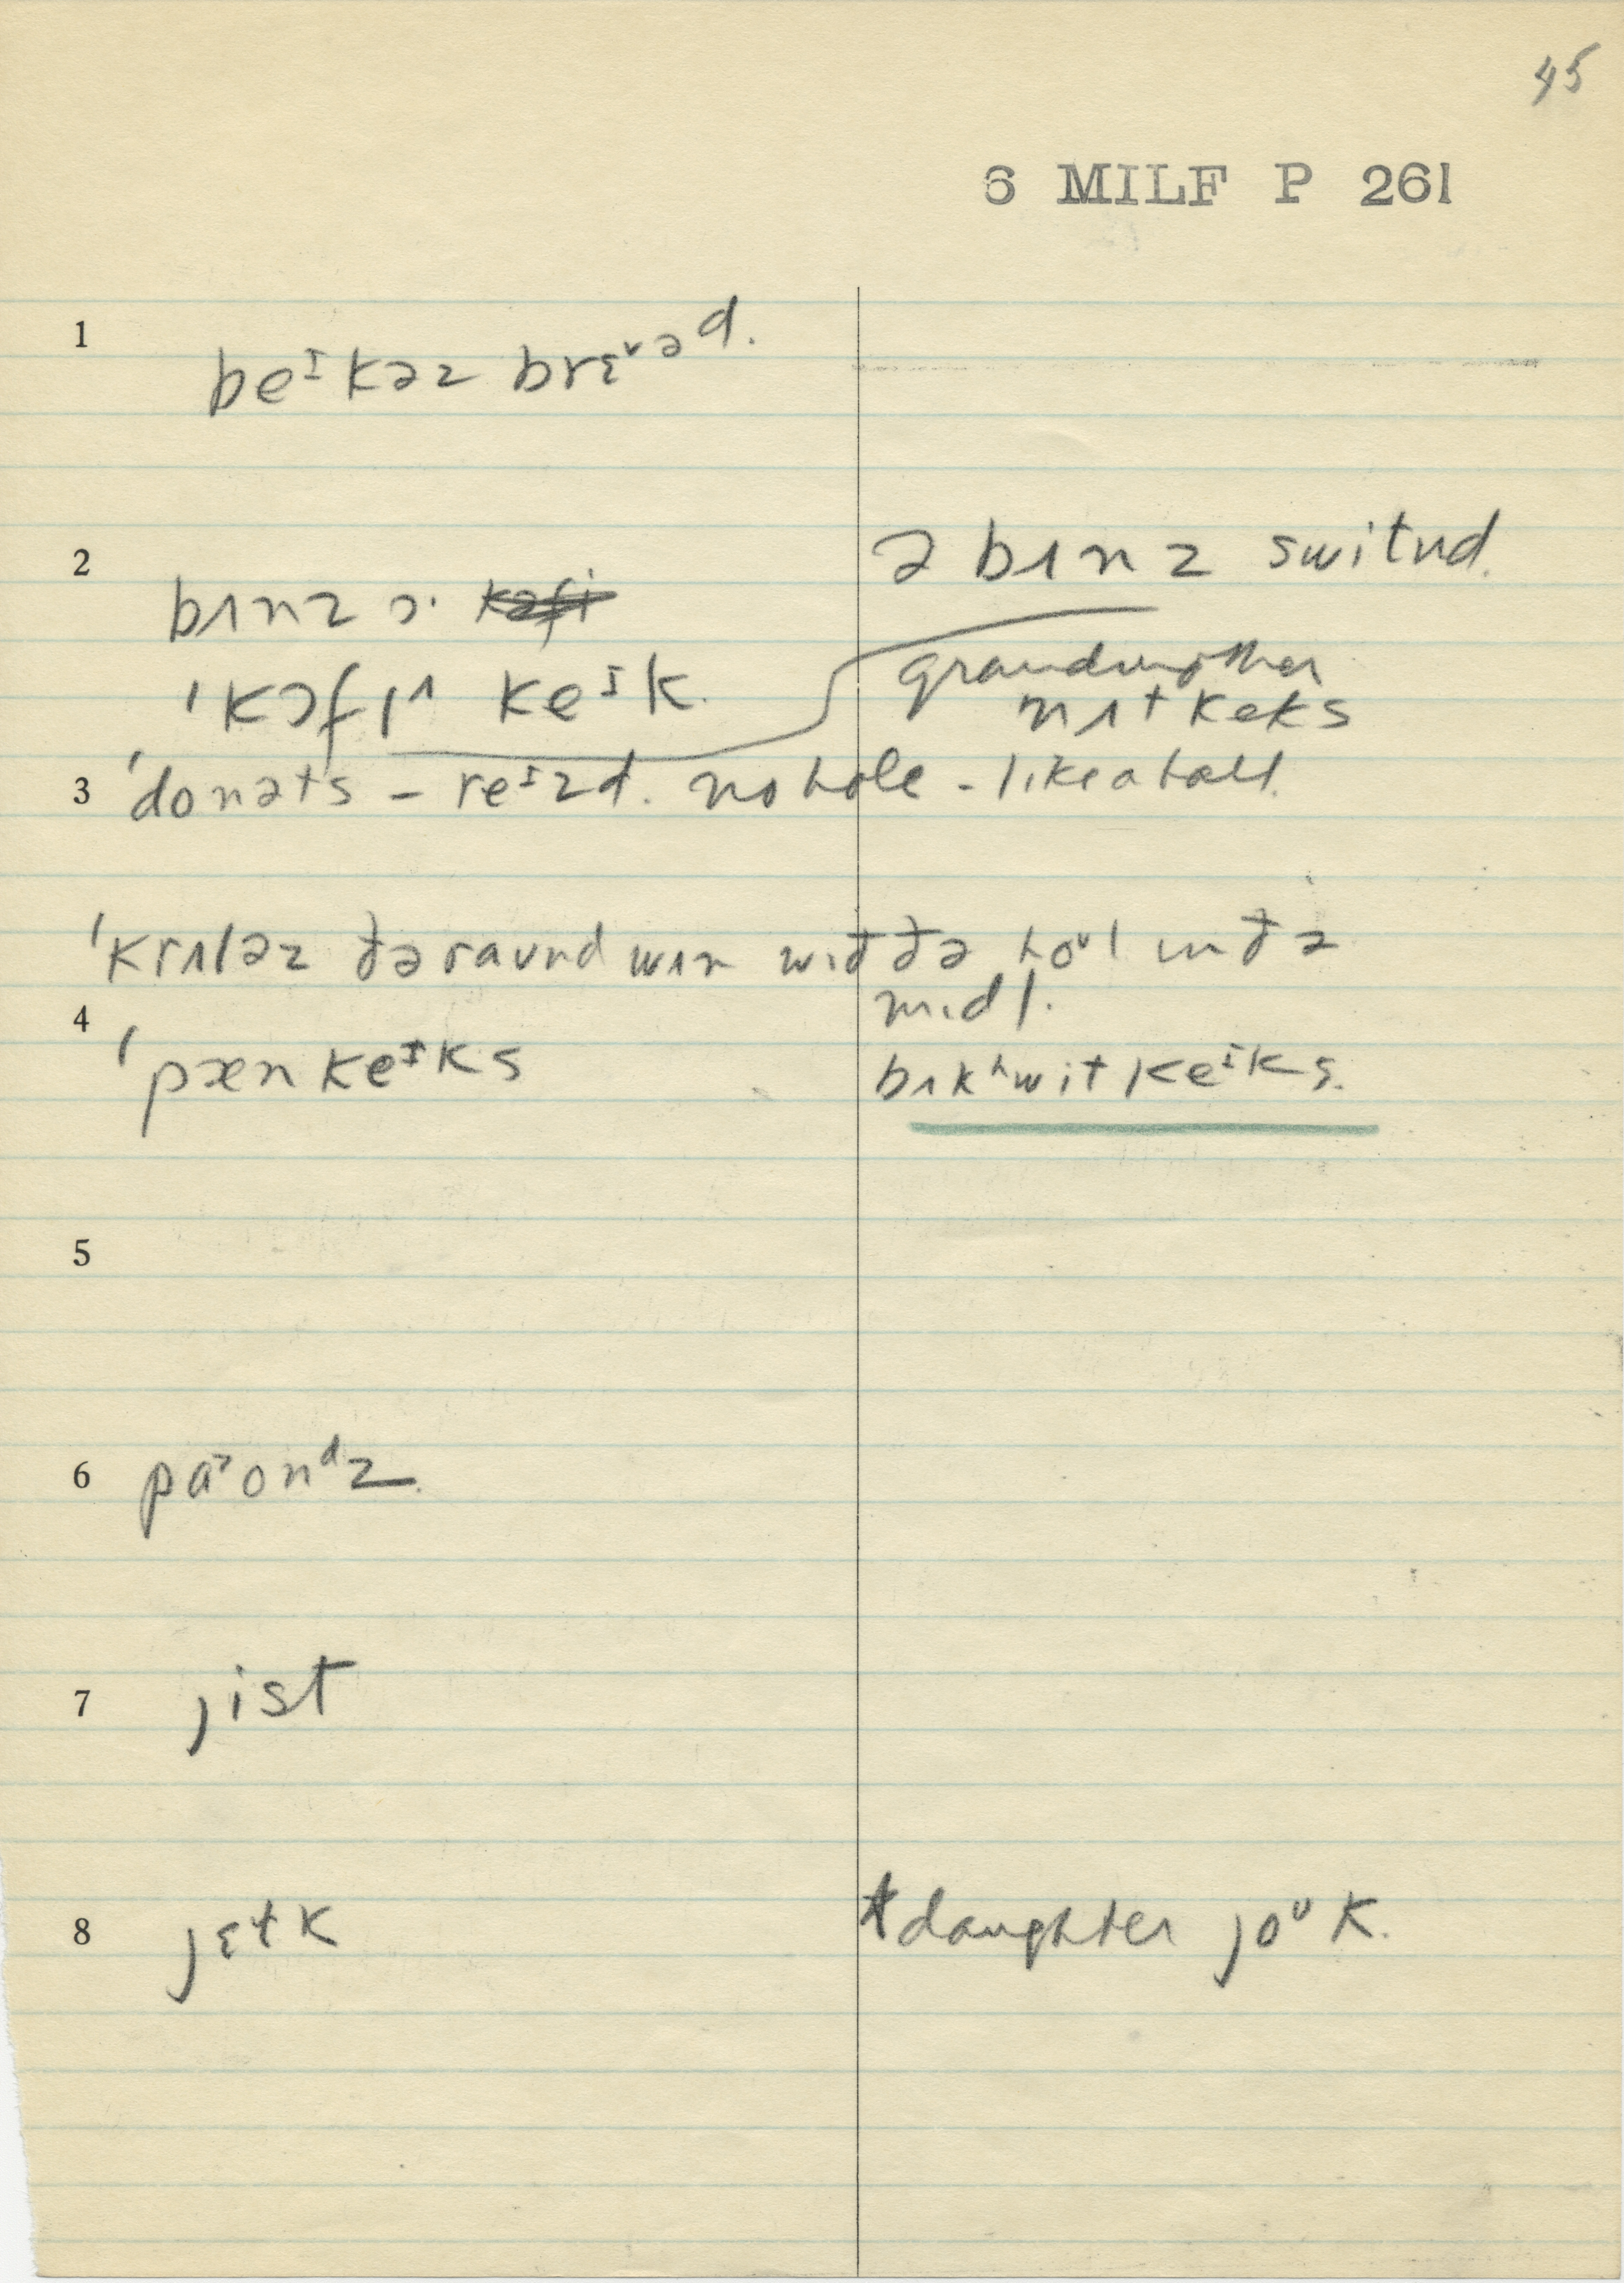 45
6 MILF P 261
1 beᶦkəz brɛᵛəd.
2 ə bɪnz switnd.
bɪnz ɔ·
ˈkɔfɪ^ keᶦk.
grandmother
nɪt keks
3 ˈdonəts – reᶦzd. no hole – like a ball.
ˈkrɪləz ðə raʊnd wɪn wɪð ðə hoᵘl ɪn ðə
mɪdl.
4 ˈpænkeᶦks bɪkʰwit keᶦks.
5
6 paᵊonᵈz.
7 jist
8 jɛɫk daughter joᵘk.